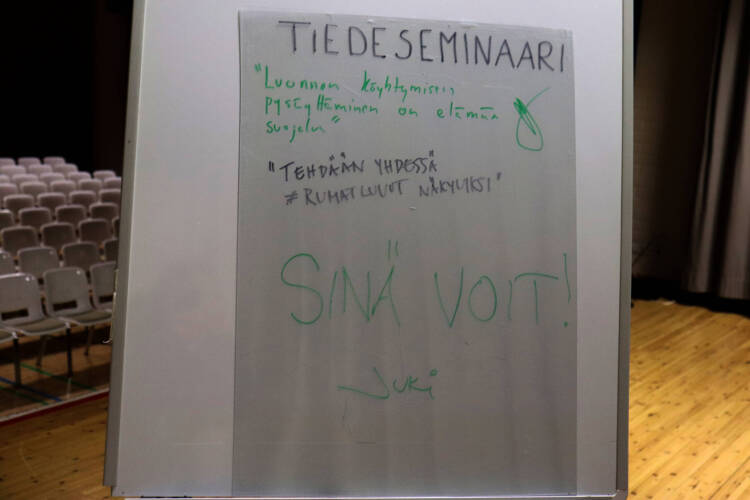 TIEDESEMINAARI
"Luonnon köyhtymisen
pysäyttäminen on elämän
suojelu"
"TEHDÄÄN YHDESSÄ
#RUMATLUVUT NÄKYVIKSI"
SINÄ VOIT!
Juki